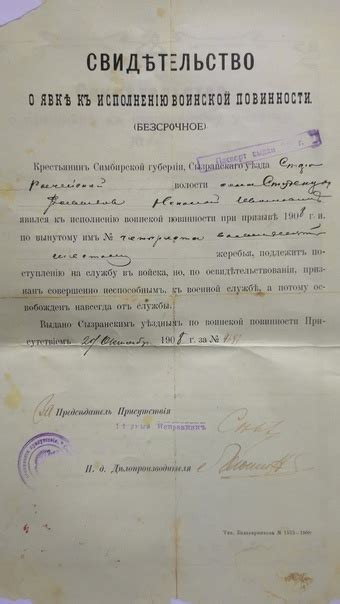 СВИДѢТЕЛЬСТВО
О ЯВКѢ КЪ ИСПОЛНЕНІЮ ВОИНСКОЙ ПОВИННОСТИ.
(БЕЗСРОЧНОЕ)
Паспорт выдан г.
Крестьянинъ Симбирской губерніи, Сызранскаго уѣзда Старо
Рачейской волости села
явился къ исполненію воинской повинности при призывѣ 1908 г. и
по вынутому имъ № четыреста восемьдесятъ
шестому жеребья, подлежитъ по-
ступленію на службу въ войска, но, по освидѣтельствованіи, приз-
нанъ совершенно неспособнымъ, къ военной службѣ, а потому ос-
вобожденъ навсегда отъ службы.
Выдано Сызранскимъ уѣзднымъ по воинской повинности При-
сутствіемъ Октября 1908 г. за №
Предсѣдатель Присутствія
Исправникъ
И. д. Дѣлопроизводителя